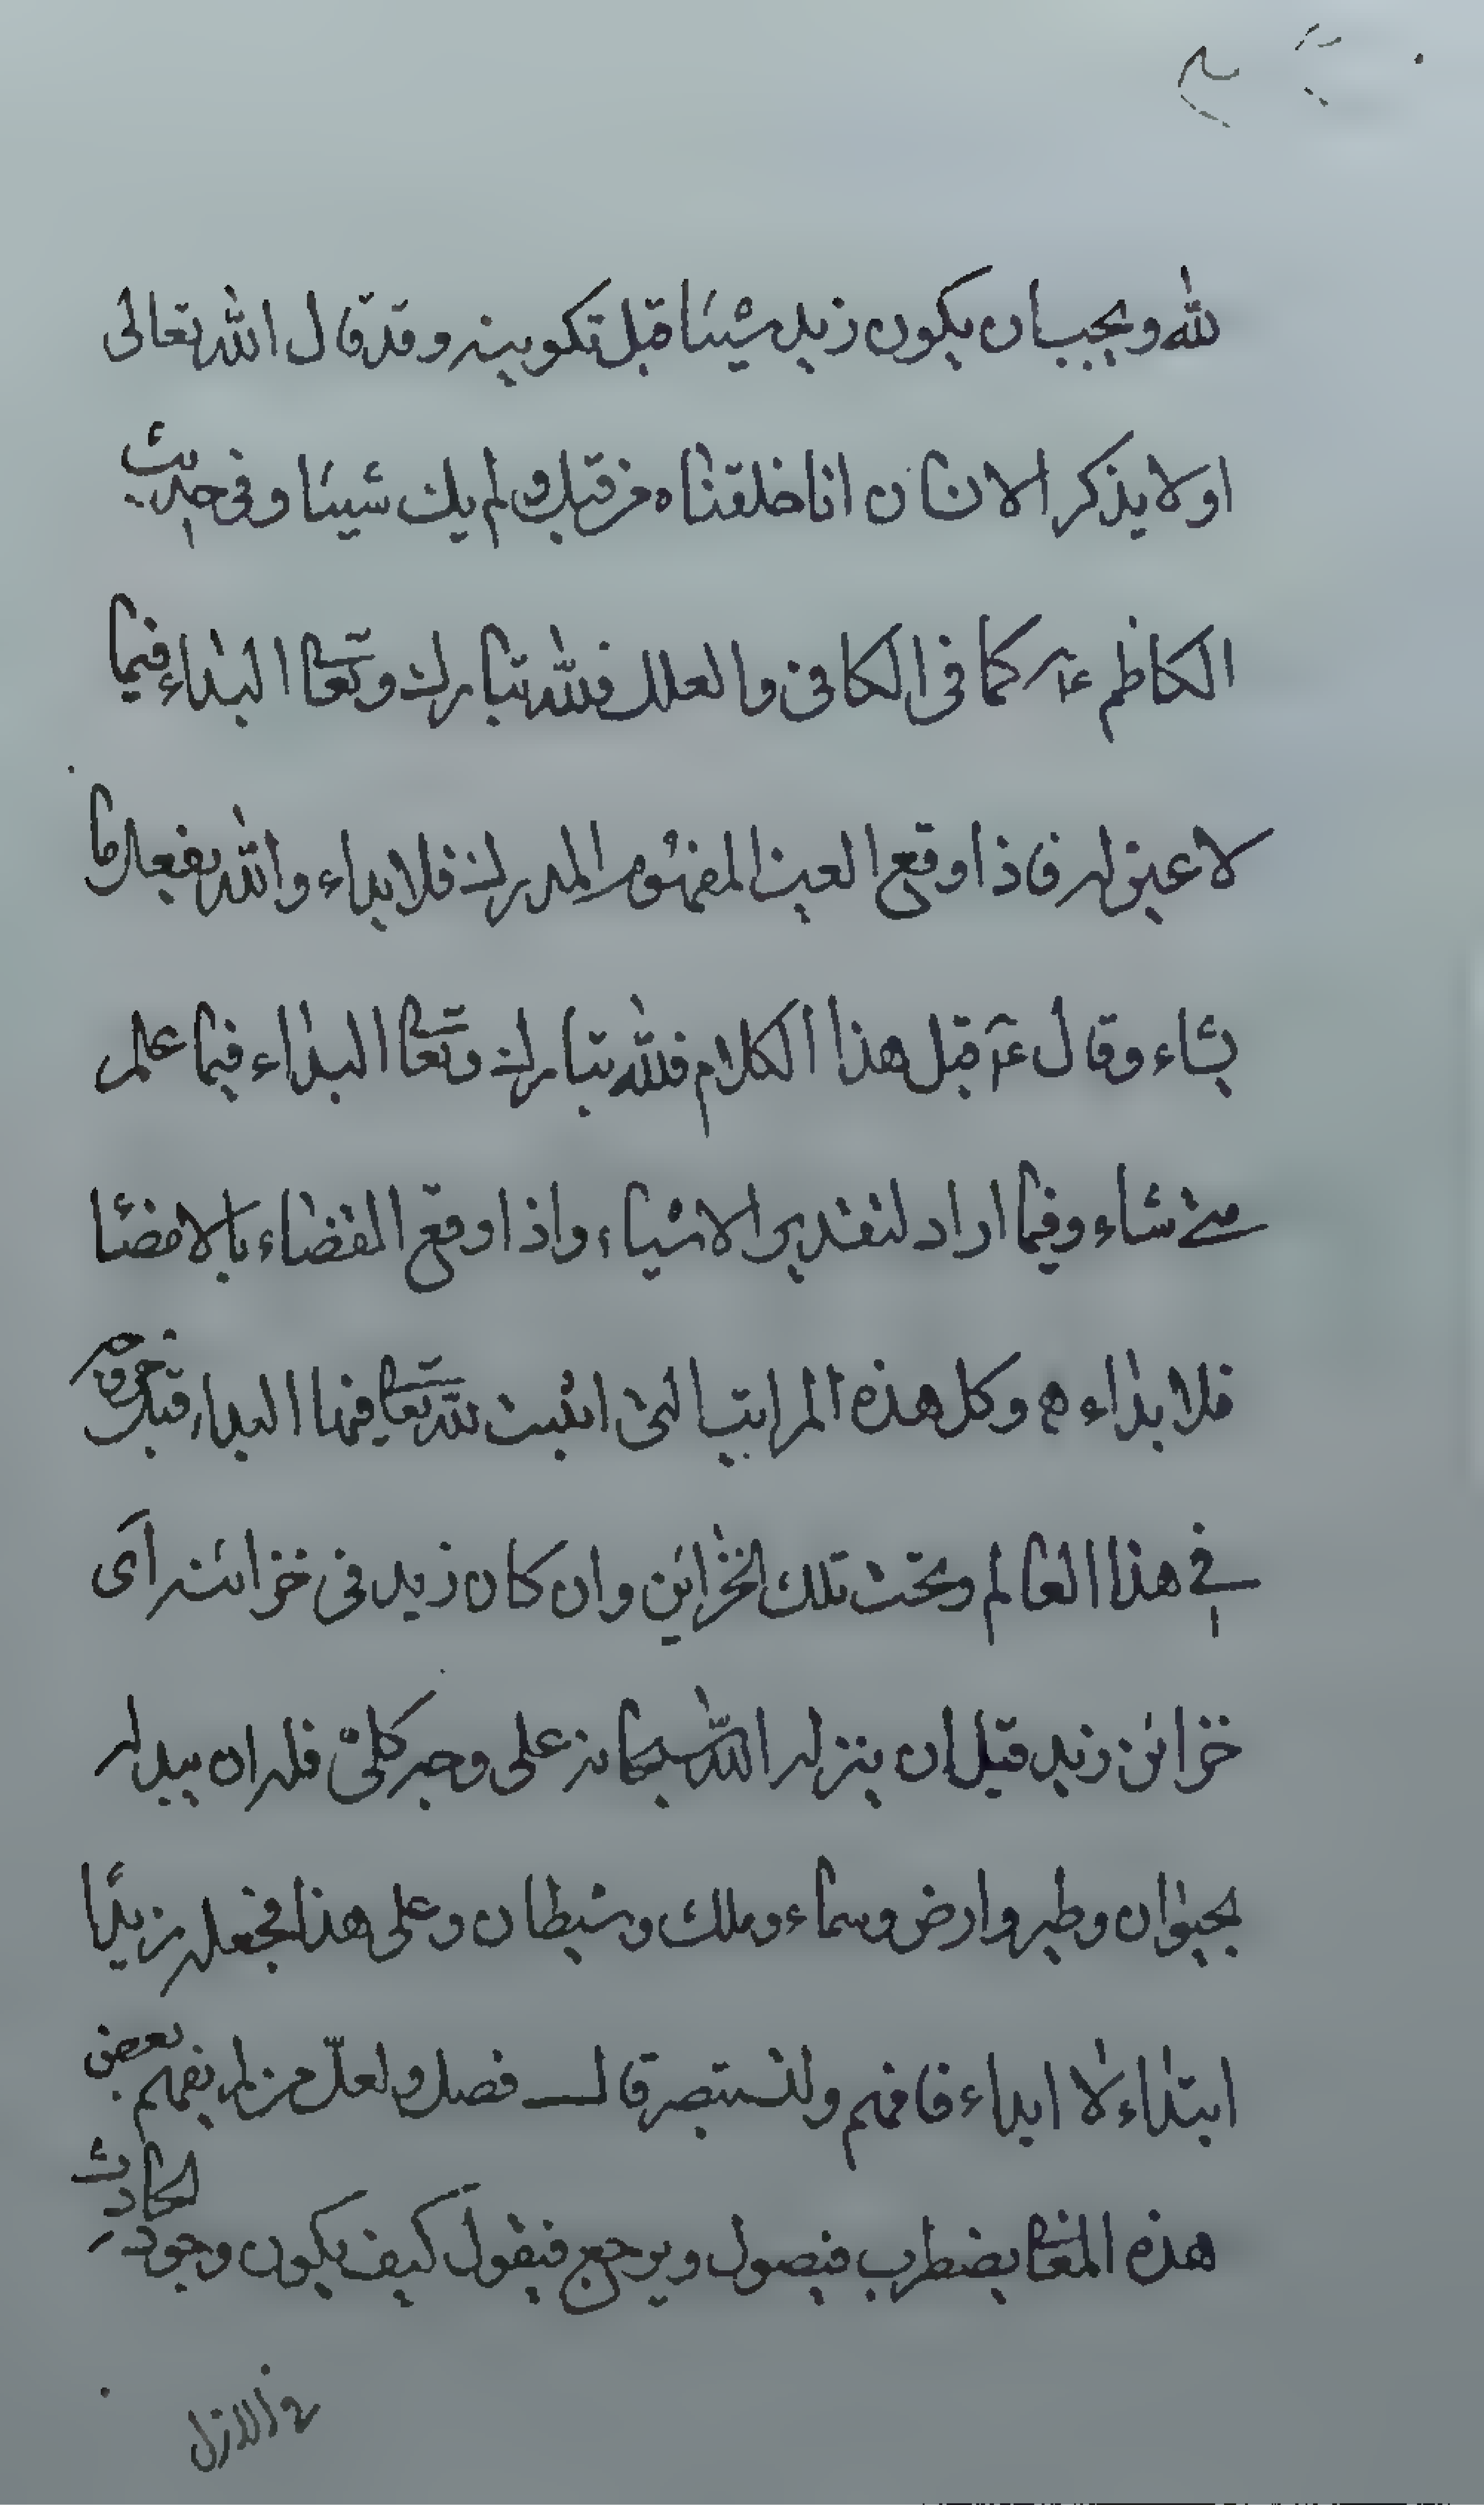 لله ويجب ان يكون زيد شيئا قبل تكوينه وقد قال الله تعالى
اولا يذكر الانسان انا خلقناه من قبل ولم يك شيئا وفي حديث
الكاظم ع كما في الكافي والعلل فلله تبارك وتعا البداء فيما
لا عين له فاذا وقع العين المفهوم المدرك فلا بداء والله يفعل ما
يشاء وقال ع قبل هذا الكلام فلله تبارك وتعا البداء فيما علم
متى شاء وفيما اراد لتقدير الاشياء واذا وقع القضاء بالامضا
فلا بداء ه وكل هذه المراتب التي اثبت لله تعا فيها البداء قبل
في هذا العالم وتحت تلك الخزاين وان كان زيد في خزائنه اى
خزائن زيد قبل ان ينزله الله سبحانه على وجه كلي فله ان يبدله
بحيوان وطير وارض وسماء وملك وشيطان وعلى هذا فجعله زيدًا
ابتداء لا ابداء فافهم ولتستبصر قال فصل ولعل من لم يفهم بعض
هذه المعا يضطرب فيصول ويرجع فيقول كيف يكون وجود الحادث
في الازل